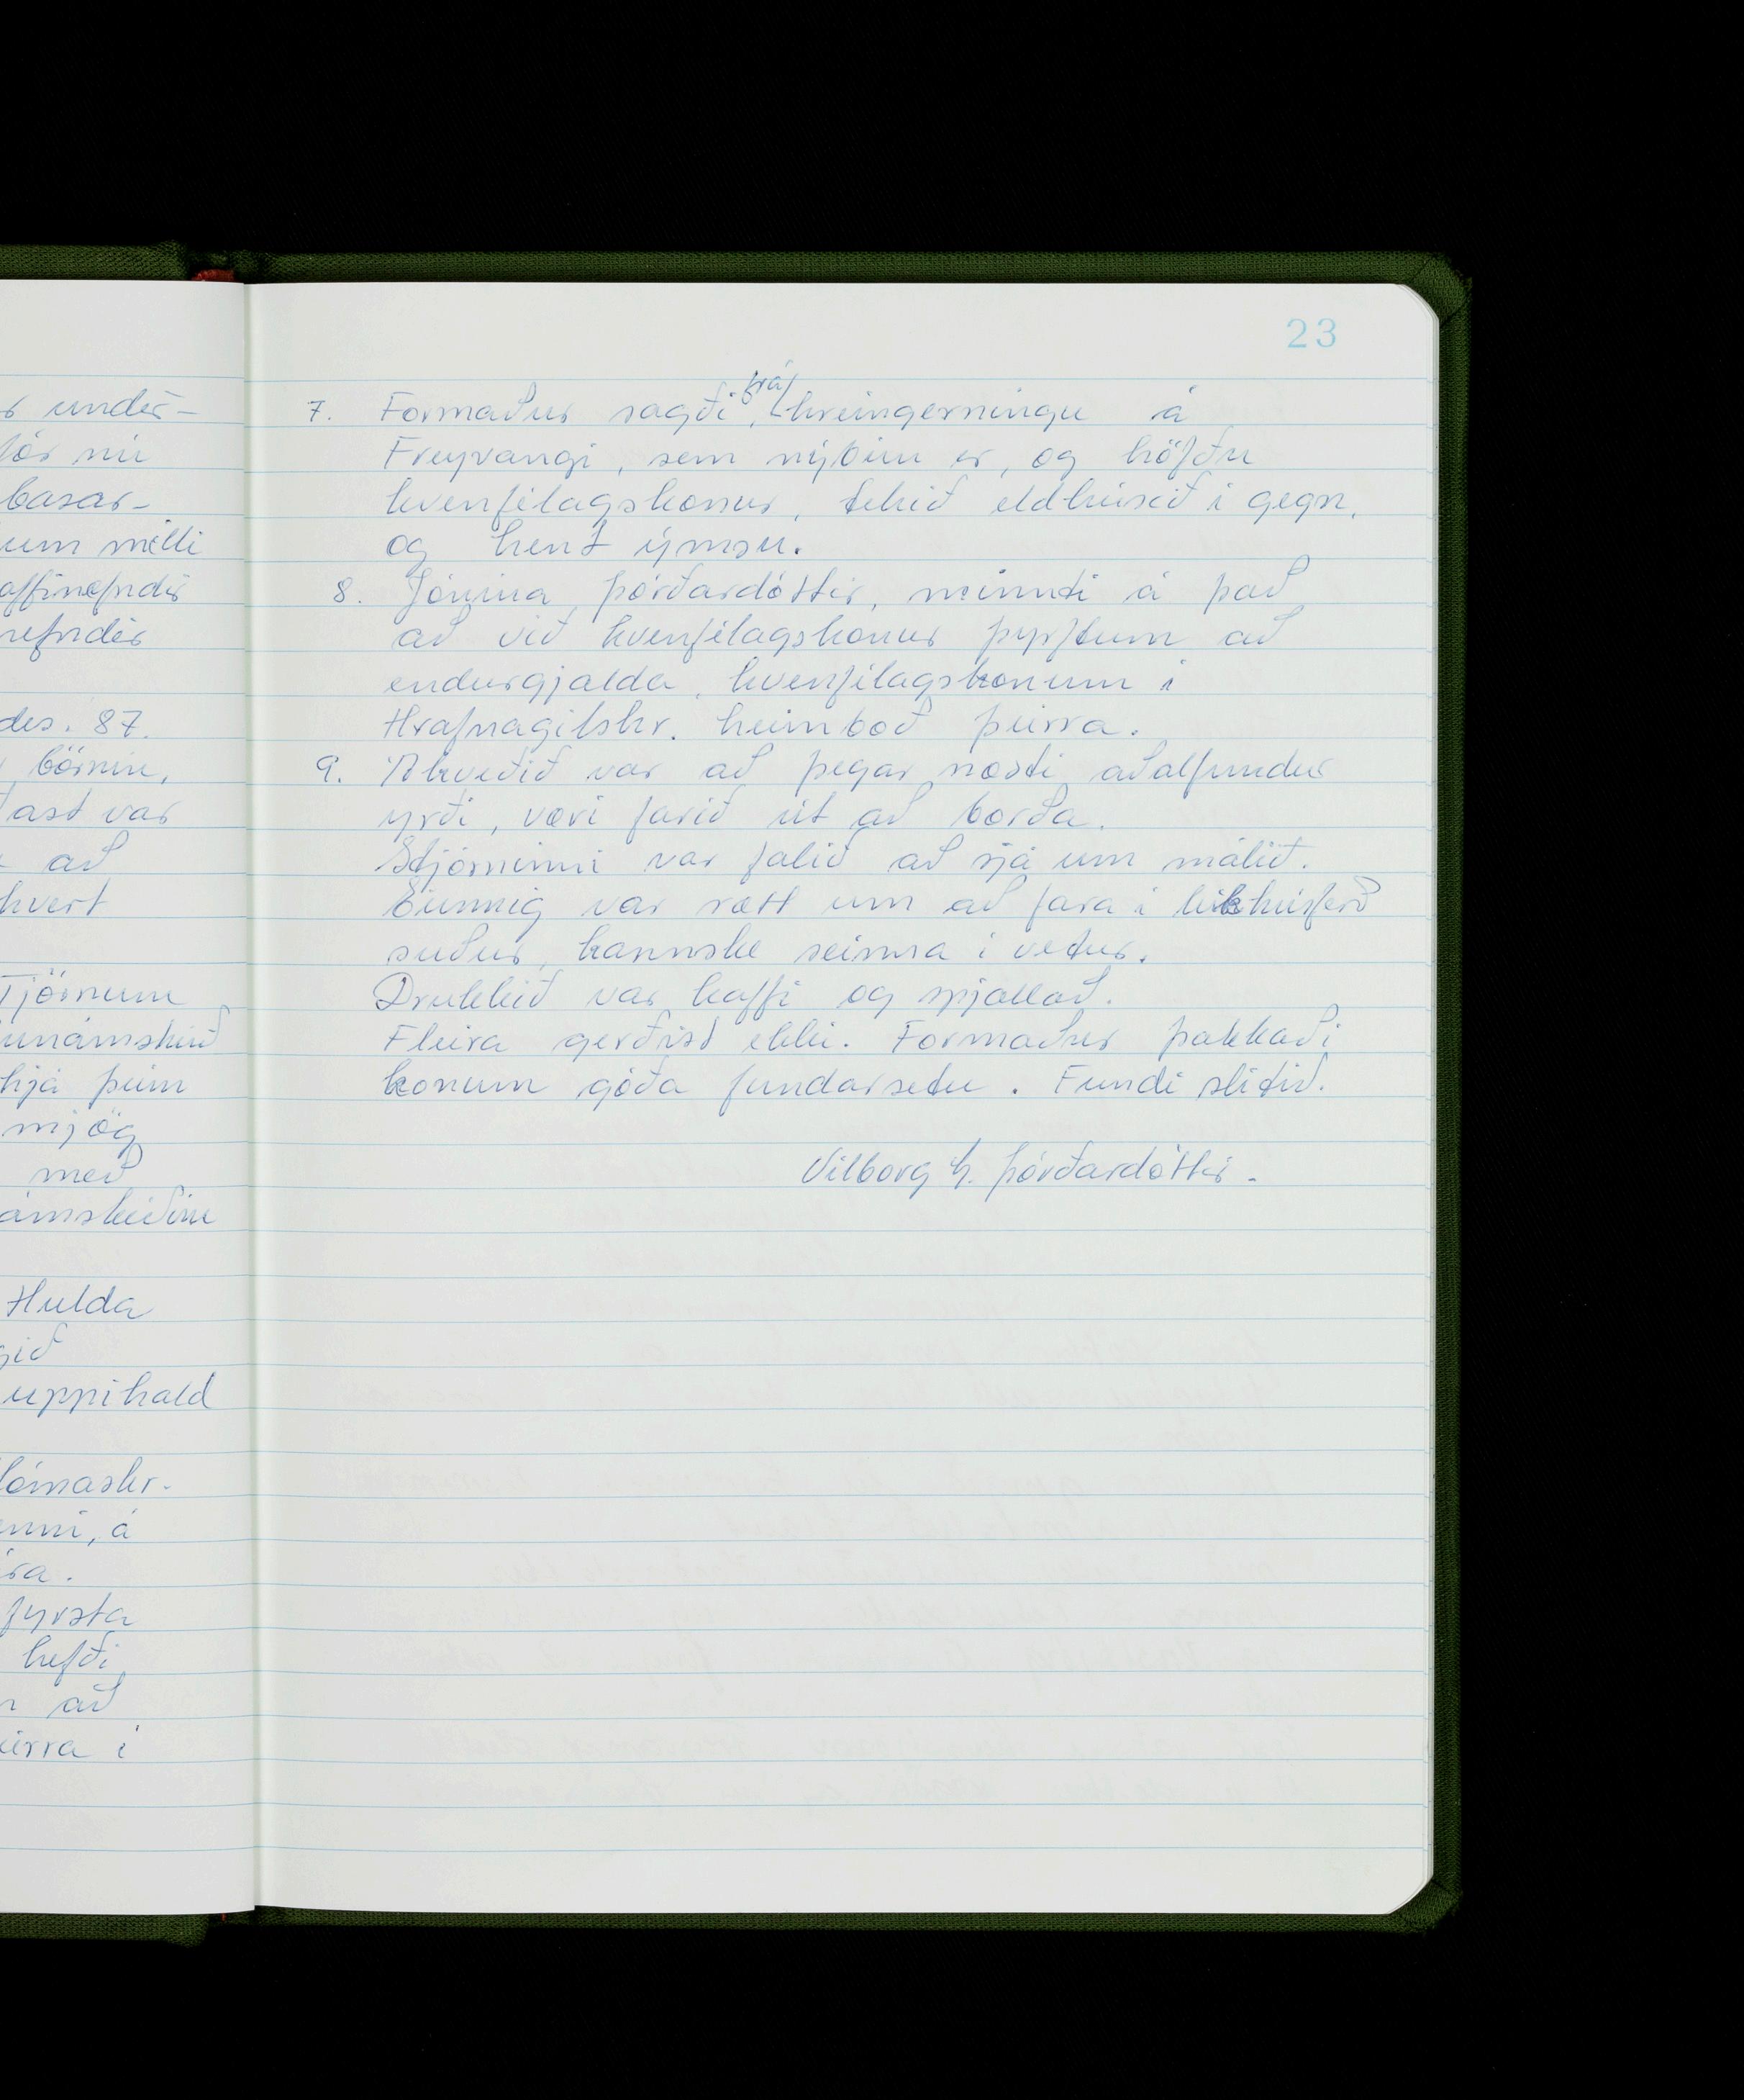 r undir-
fór nú
basar-
um milli
affinefndir
nefndir
des. 87.
börnin,
ast var
að
hvert
Tjörnum
unámskeið
hjá þeim
mjög
með
ámskeiðinu
Hulda
gið
uppihald
ómaskr.
enni, á
ira.
fyrsta
hefði
að
eirra í
23
7. Formaður sagði frá hreingerningu á
Freyvangi, sem nýbúin er, og höfðu
kvenfélagskonur, tekið eldhúsið í gegn,
og hent ýmsu.
8. Jónína Þórðardóttir, minnti á það
að við kvenfélagskonur þyrftum að
endurgjalda, kvenfélagskonum í
Hrafnagilshr. heimboð þeirra.
9. Ákveðið var að þegar næsti aðalfundur
yrði, væri farið út að borða.
Stjórninni var falið að sjá um málið.
Einnig var rætt um að fara í leikhúsferð
suður, kannske seinna í vetur.
Drukkið var kaffi og spjallað.
Fleira gerðist ekki. Formaður þakkaði
konum góða fundarsetu. Fundi slitið.
Vilborg Þórðardóttir.